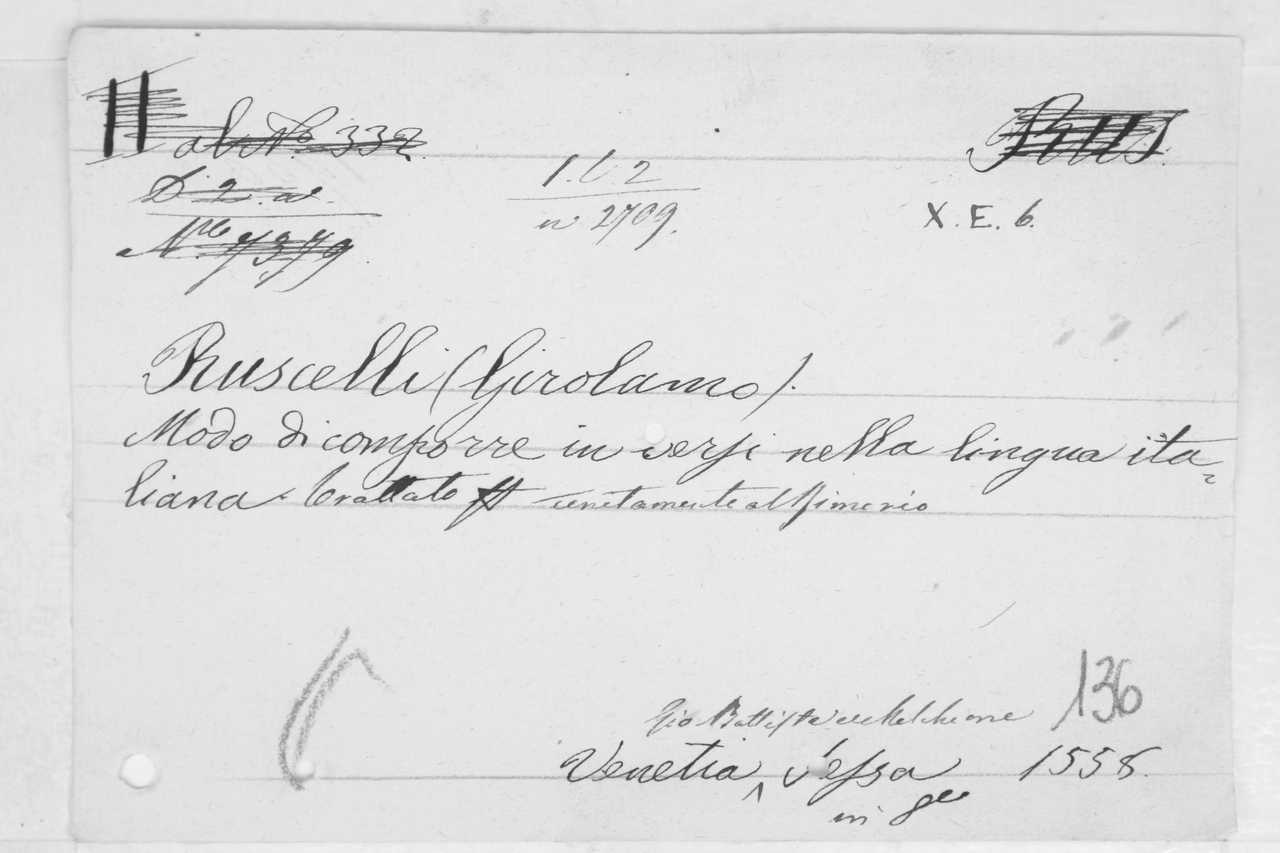 al N.º 332
D. 2. a.
N.ro 7379
1. C. 2
n 2709.
X. E. 6.
Ruscelli (Girolamo).
Modo di comporre in versi nella lingua ita-
liana trattato unitamente al Rimario
136
Gio Battista e Melchiorre
Venetia, Sessa 1558.
in 8vo